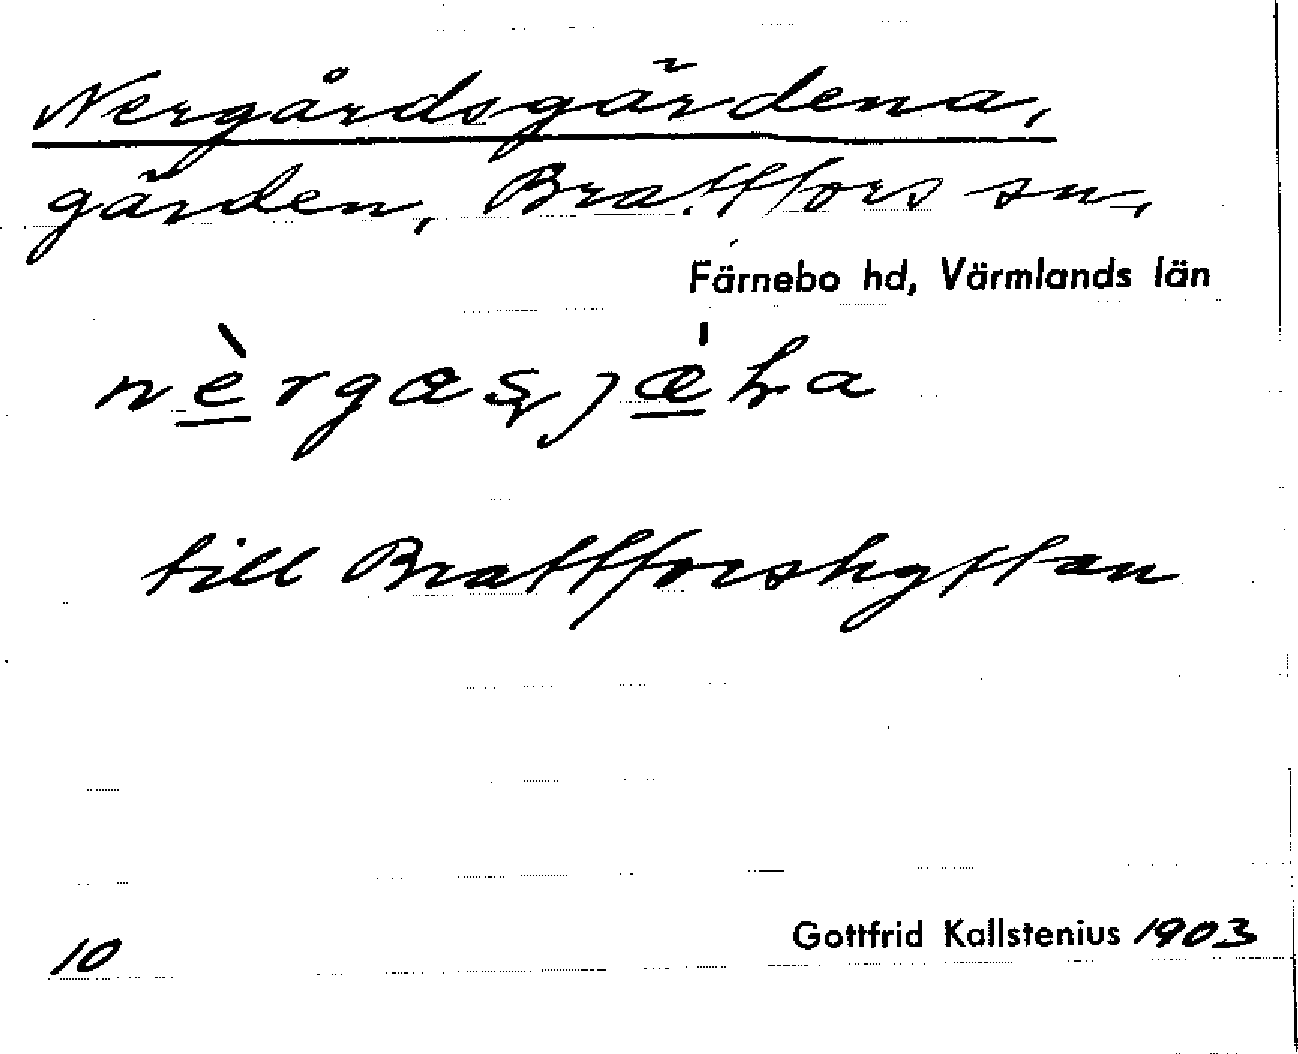 Nergårdsgärdena,
gärden, Brattfors sn,
Färnebo hd, Värmlands län
till Brattforshyttan
10
Gottfrid Kallstenius 1903